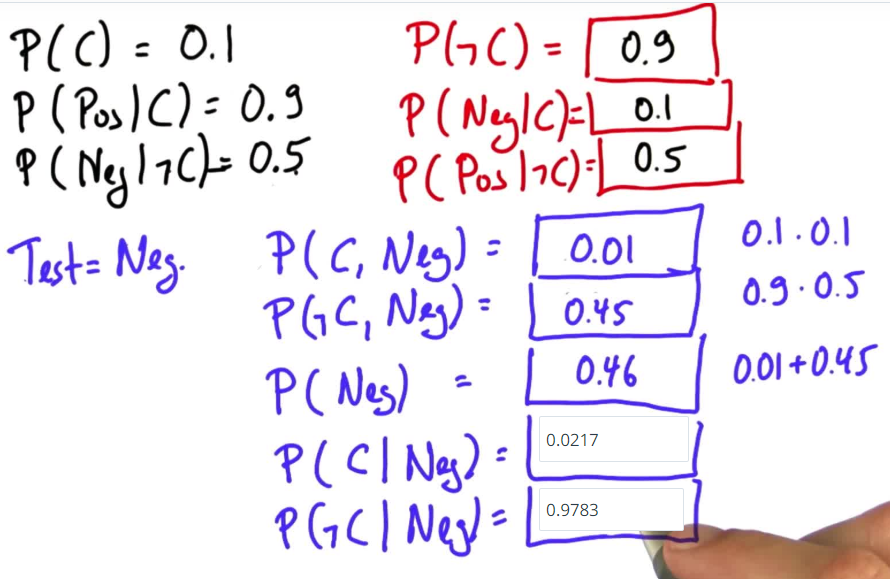 P(C) = 0.1 P(¬C) = 0.9
P(Pos|C) = 0.9 P(Neg|C)= 0.1
P(Neg|¬C)= 0.5 P(Pos|¬C)= 0.5
Test= Neg. P(C, Neg) = 0.01 0.1 · 0.1
P(¬C, Neg) = 0.45 0.9 · 0.5
P(Neg) = 0.46 0.01+0.45
P(C|Neg) = 0.0217
P(¬C|Neg) = 0.9783